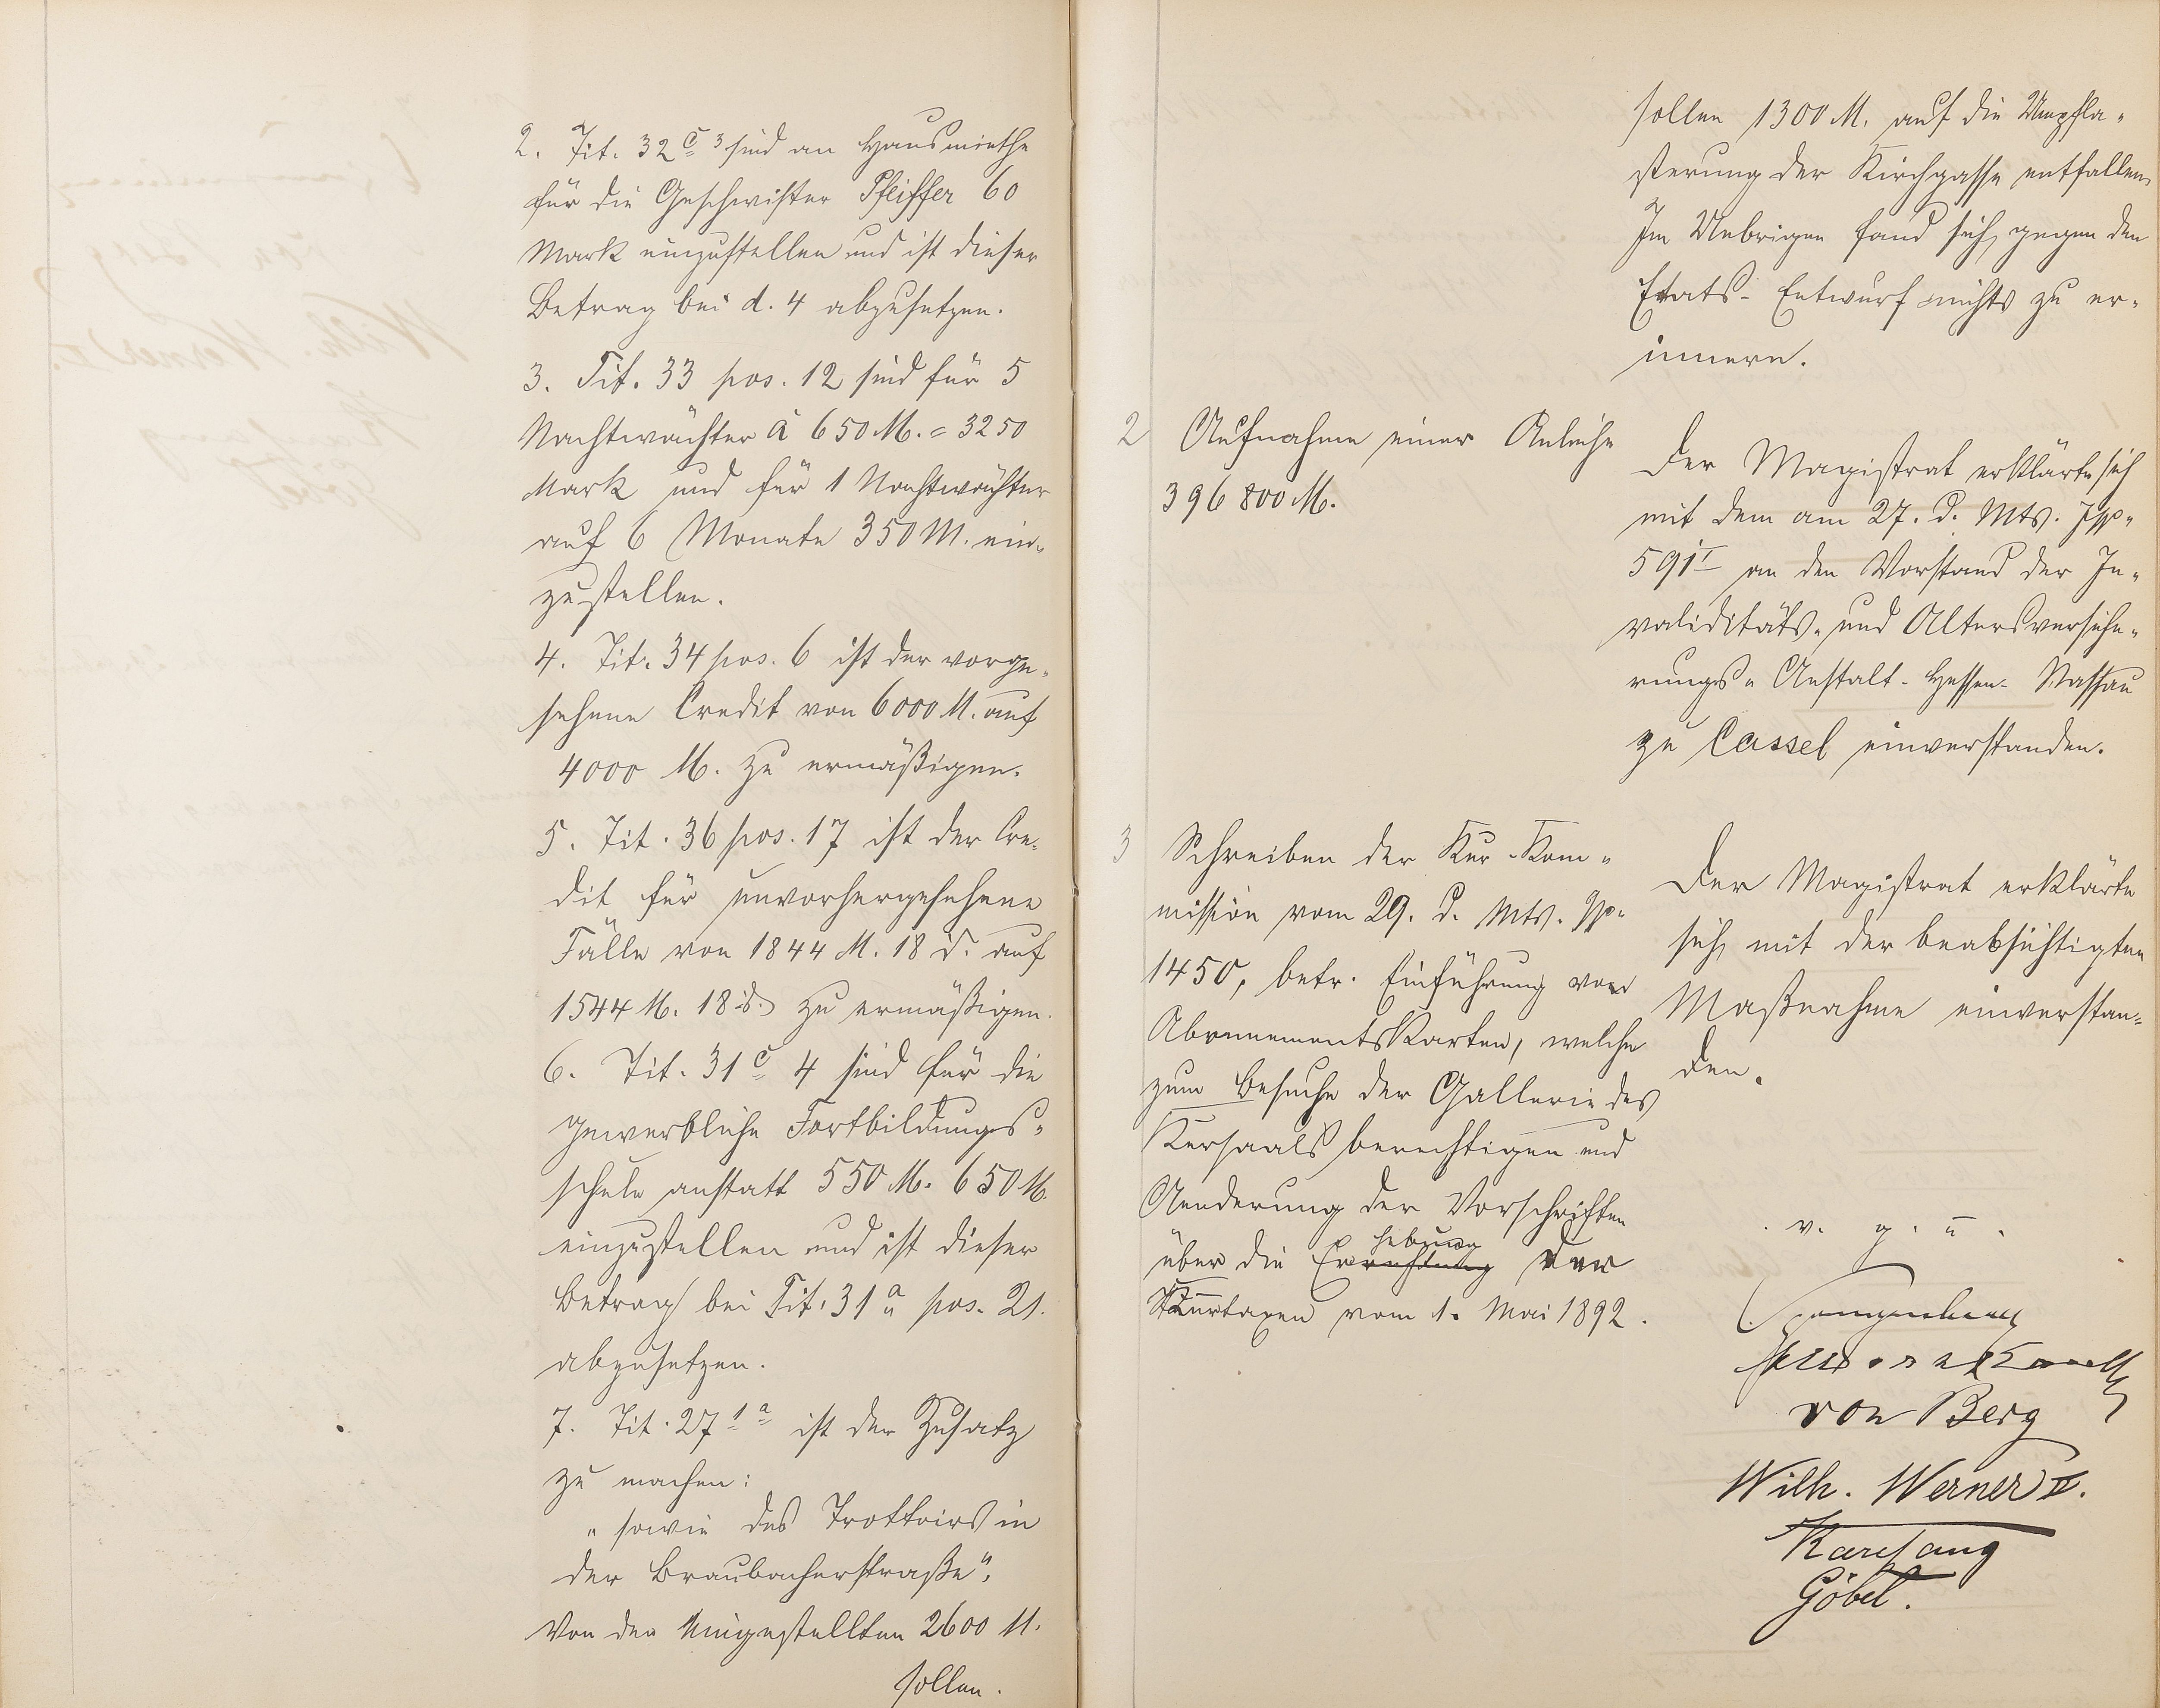 2. Tit. 32 c 3 sind an Hausmiethe
für die Geschwister Pfeiffer 60
Mark einzustellen und ist dieser
Betrag bei d. 4 abzusetzen.
3. Tit. 33 pos. 12 sind für 5
Nachtwächter á 650 M. = 3250
Mark und für 1 Nachtwächter
auf 6 Monate 350 M. ein-
zustellen.
4. Tit. 34 pos. 6 ist der vorge-
sehene Credit von 6000 M. auf
4000 M. zu ermäßigen.
5. Tit. 36 pos. 17 ist der Cre-
dit für unvorhergesehene
Fälle von 1844 M. 18 d. auf
1544 M. 18 d. zu ermäßigen.
6. Tit. 31 c 4 sind für die
gewerbliche Fortbildungs-
schule anstatt 550 M. 650 M.
einzustellen und ist dieser
Betrag bei Tit. 31 a pos. 21.
abzusetzen.
7. Tit. 27 1 a ist der Zusatz
zu machen:
„sowie des Trottoirs in
der Braubacherstraße“.
Von den eingestellten 2600 M.
sollen.
sollen 1300 M. auf die Umpfla-
sterung der Kirchgasse entfallen.
Im Uebrigen fand sich gegen den
Etats-Entwurf nichts zu er-
innern.
2 Aufnahme einer Anleihe
396 800 M.
Der Magistrat erklärte sich
mit dem am 27. d. Mts.
591 I an den Vorstand der In-
validitäts- und Altersversiche-
rungs-Anstalt-Hessen-Nassau
zu Cassel einverstanden.
3 Schreiben der Kur-Kom-
mission vom 29. d. Mts.
1450, betr. Einführung von
Abonnementskarten, welche
zum Besuche der Gallerie des
Kursaals berechtigen und
Aenderung der Vorschriften
über die Erhebung der
Kurtaxen vom 1. Mai 1892.
Der Magistrat erklärte
sich mit der beabsichtigten
Maßnahme einverstan-
den.
v. g. u.
von Berg
Wilh. Werner II.
Göbel.